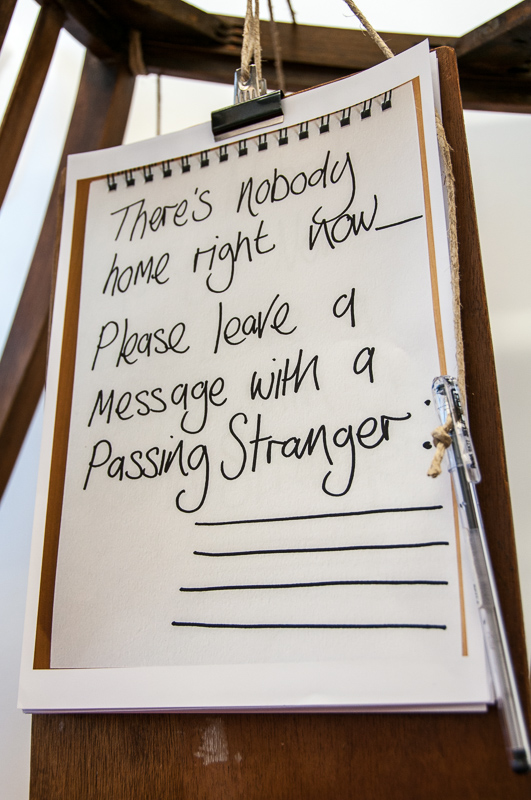 There's nobody
home right now—
Please leave a
Message with a
Passing Stranger: